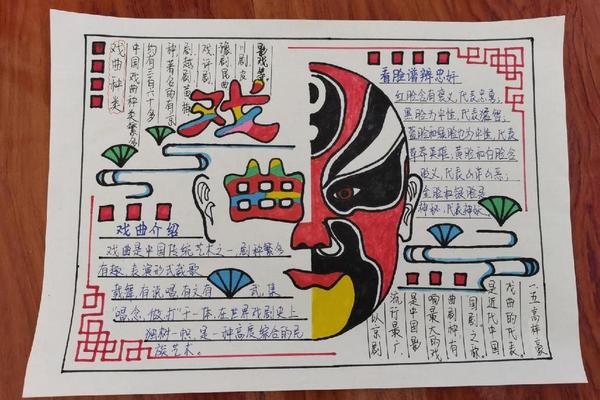 戏曲种类
中国戏曲种类繁多
约有三百六十多
种,著名的有京
剧越剧黄梅
戏,评剧
豫剧昆曲
川剧皮
影戏等.
戏
曲
看脸谱辨忠奸
红脸含有褒义,代表忠勇;
黑脸为中性,代表猛智;
蓝脸和绿脸也为中性,代表
草莽英雄,黄脸和白脸含
贬义,代表凶诈凶恶;
金脸和银脸是
神秘,代表神妖.
戏曲介绍
戏曲是中国传统艺术之一,剧种繁多
有趣,表演形式载歌
载舞,有说,唱,有文有 式,集
"唱念,做,打"于一体,在世界戏剧史上
独树一帜,是一种高度综合的民
族艺术.
高梓豪
戏曲的代表.
是近代中国
国剧"之称.
曲剧种有
响最大的戏
是中国影
流行最广
以京剧